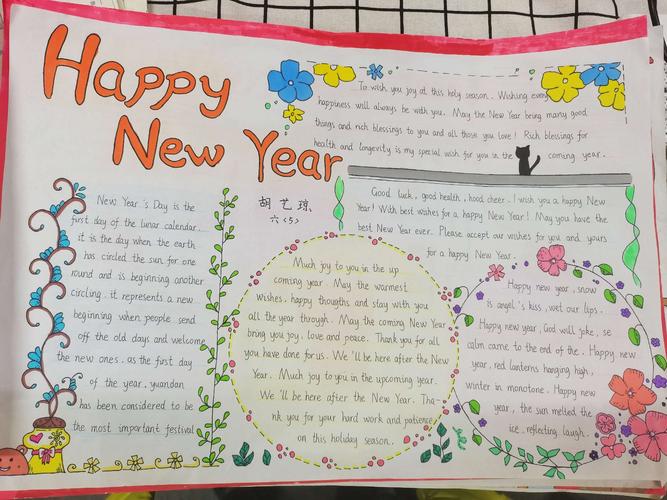 Happy
New Year
胡艺琼
六<5>
To wish you joy at this holy season. Wishing every
happiness will always be with you. May the New Year bring many good
things and rich blessings to you and all those you love! Rich blessings for
health and longevity is my special wish for you in the coming year.
Good luck, good health, hood cheer. I wish you a happy New
Year! With best wishes for a happy New Year! May you have the
best New Year ever. Please accept our wishes for you and yours
for a happy New Year.
New Year's Day is the
first day of the lunar calendar.
it is the day when the earth
has circled the sun for one
round and is beginning another
circling. it represents a new
beginning when people send
off the old days and welcome
the new ones. as the first day
of the year, yuandan
has been considered to be
the most important festival
Much joy to you in the up
coming year. May the warmest
wishes, happy thougths and stay with you
all the year through. May the coming New Year
bring you joy, love and peace. Thank you for all
you have done for us. We'll be here after the New
Year. Much joy to you in the upcoming year.
We'll be here after the New Year. Tha-
nk you for your hard work and patience
on this holiday season.
Happy new year, snow
is angel's kiss, wet our lips.
Happy new year, God will joke, se
calm came to the end of the. Happy new
year, red lanterns hanging high,
winter in monotone. Happy new
year, the sun melted the
ice, reflecting laugh.